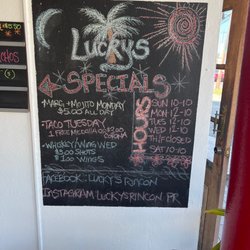 LUCKYS
SPECIALS
MARG + MOJITO MONDAY
$5.00 ALL DAY
TACO TUESDAY
1 FREE
WHISKEY/WING WED
$3.00 SHOTS
$1.00 WINGS
HOURS
SUN 10-10
MON 12-10
TUES 12-10
WED 12-10
THU CLOSED
SAT 10-10
FACEBOOK: LUCKY'S RINCON
INSTAGRAM LUCKYSRINCON PR